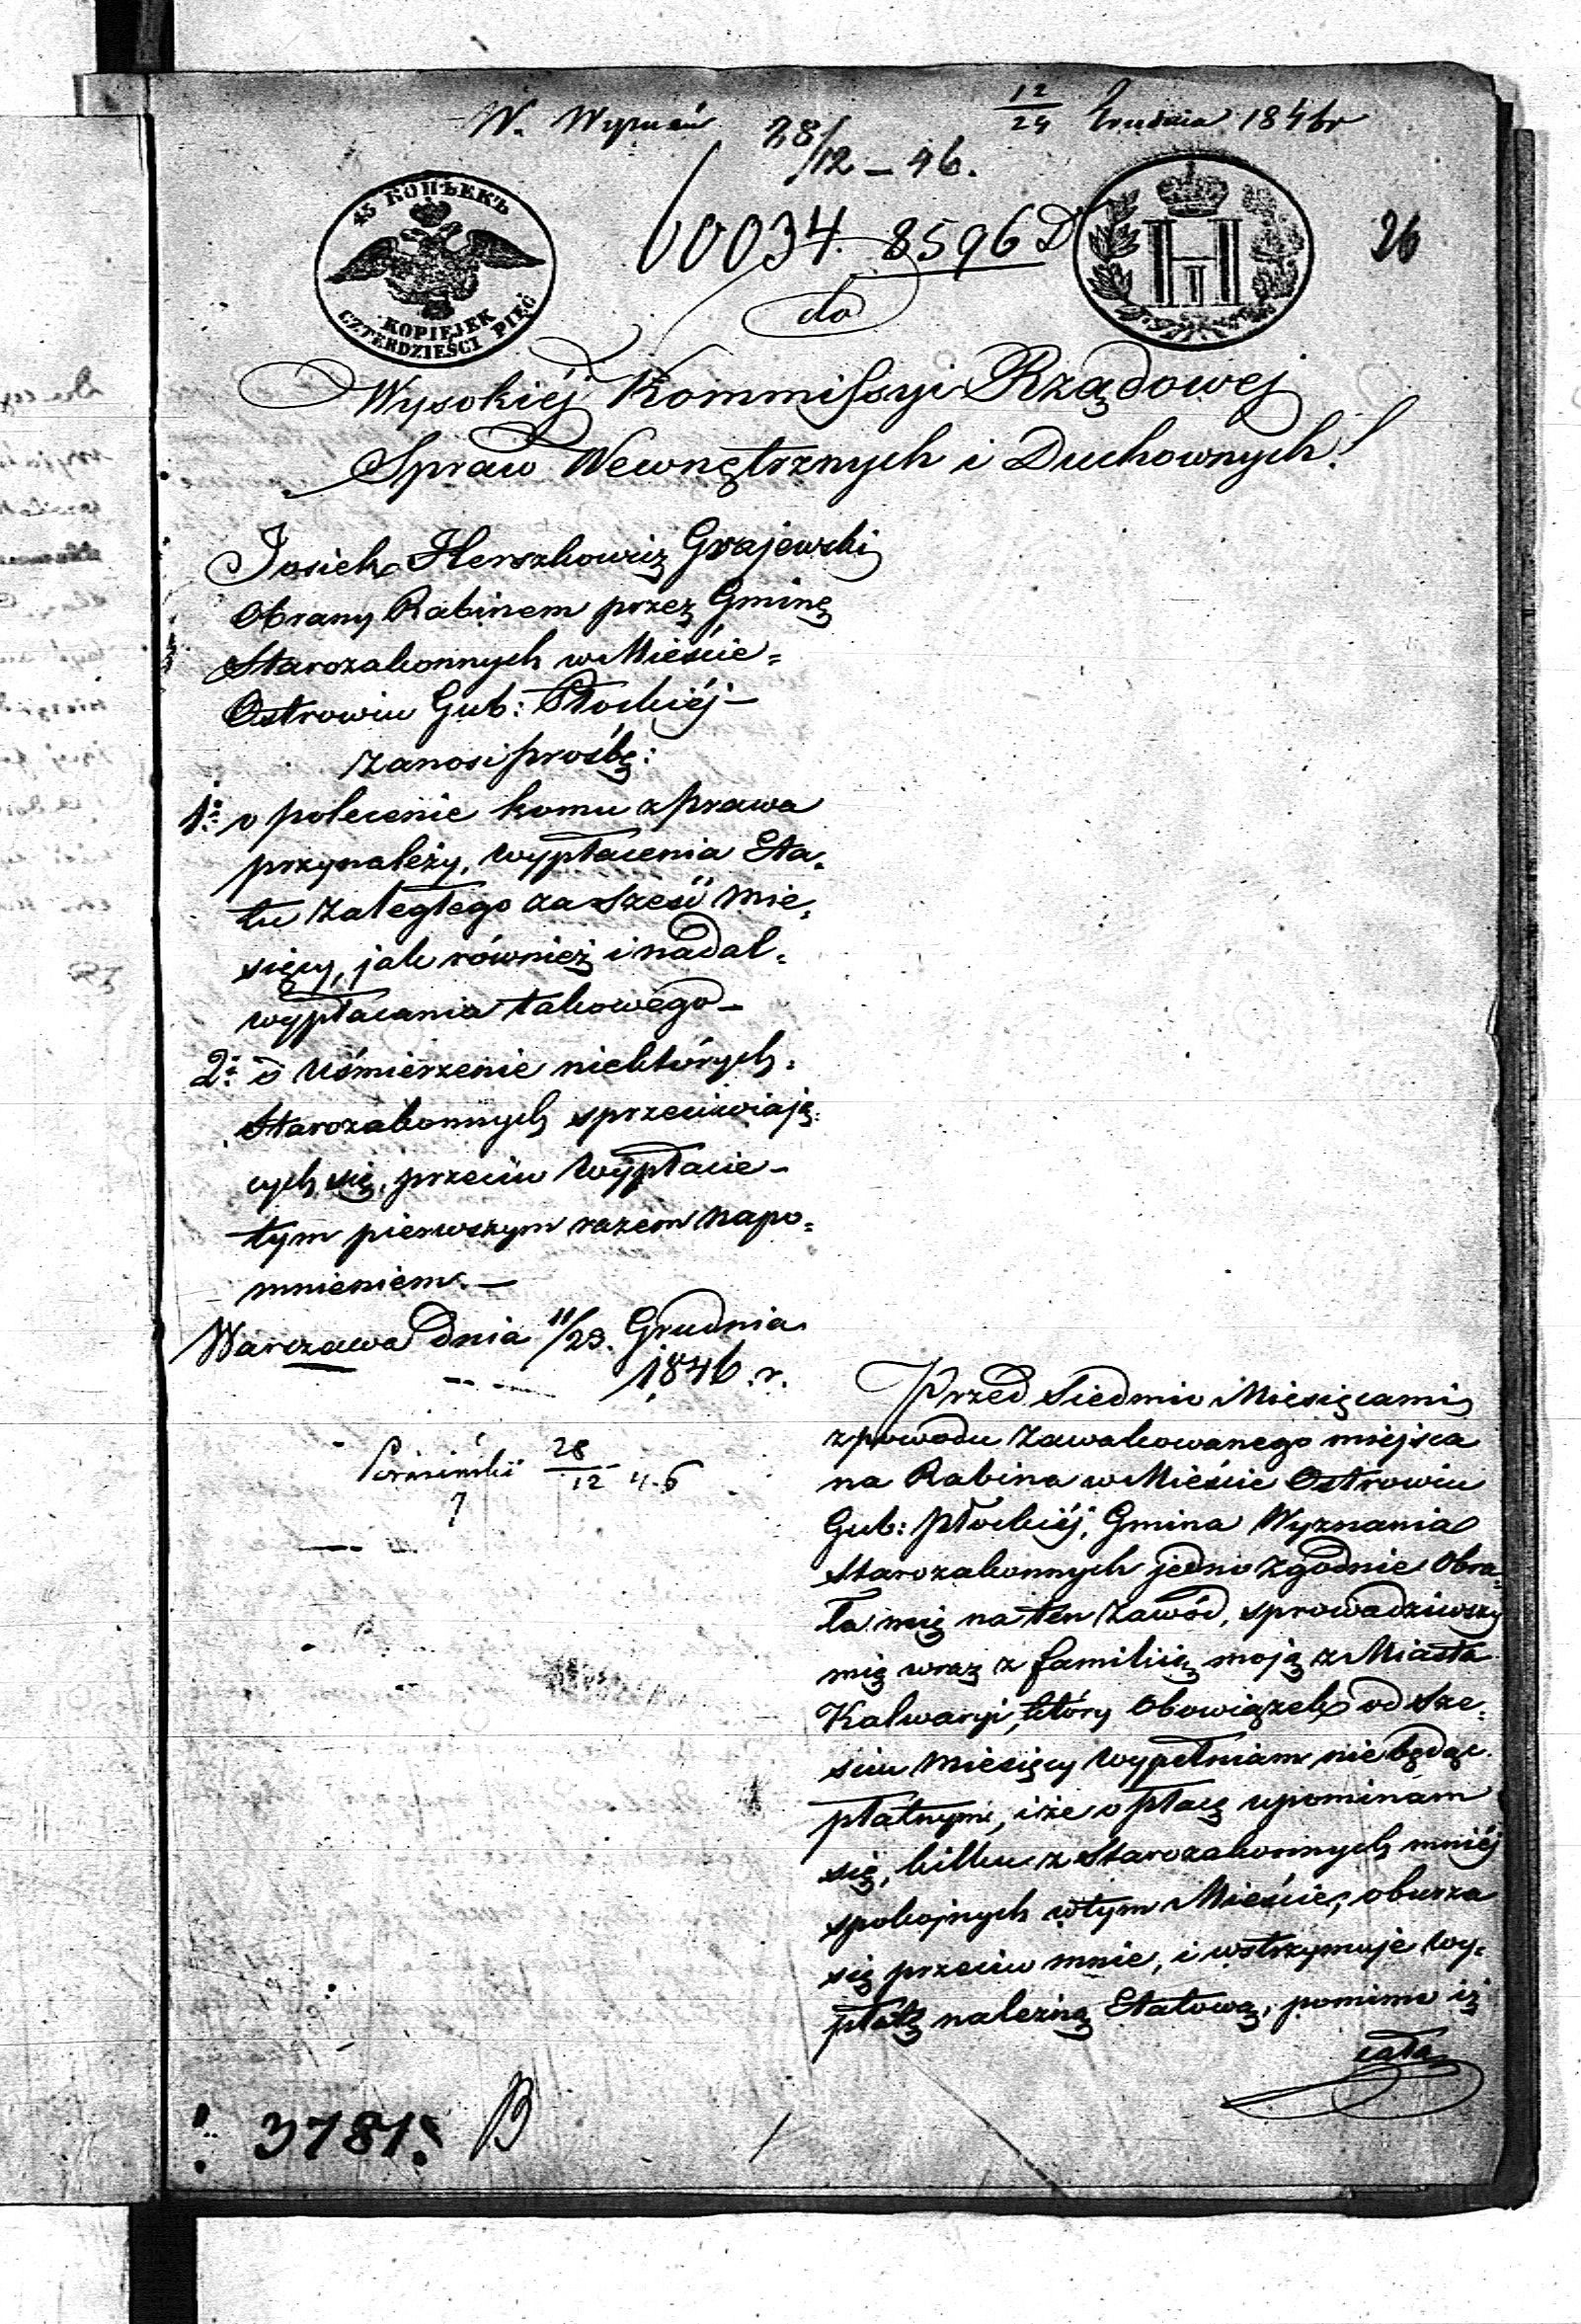 12/24 Grudnia 1846 r
28/12 – 46.
45 КОПѢЕКЪ
KOPIEJEK
CZTERDZIEŚCI PIĘĆ
60034. 8596 D
26
do
Wysokiéj Kommissyi Rządowej
Spraw Wewnętrznych i Duchownych!
Josiek Herszkowicz Grajewski
Obrany Rabinem przez Gminę
Starozakonnych w Mieście=
Ostrowiu Gub: Płockiéj –
zanosi prośbę:
1º o polecenie komu z prawa
przynależy, wypłacenia Eta=
tu zaległego za sześć mie=
sięcy, jak również i nadal=
wypłacania takowego –
2º o uśmierzenie niektórych=
Starozakonnych sprzeciwiają=
cych się, przeciw wypłacie –
tym pierwszym razem napo=
mnieniem. –
Warszawa dnia 11/23. Grudnia
1846. r.
28/12 46
Przed Siedmio Miesięcami
z powodu zawakowanego miejsca
na Rabina w Mieście Ostrowiu
Gub: Płockiéj, Gmina Wyznania
Starozakonnych jedno zgodnie Obra=
ła mię na ten zawód, sprowadziwszy
mię wraz z familiią moją z Miasta
Kalwaryi, który Obowiązek od sze=
sciu miesięcy wypełniam nie będąc
płatnym, i że o płacę upominam
się, kilku z Starozakonnych mniéj
spokojnych w tym Mieście, oburza
się przeciw mnie, i wstrzymuje wy=
płatę należną Etatową, pomimo iż
cała
3781. B